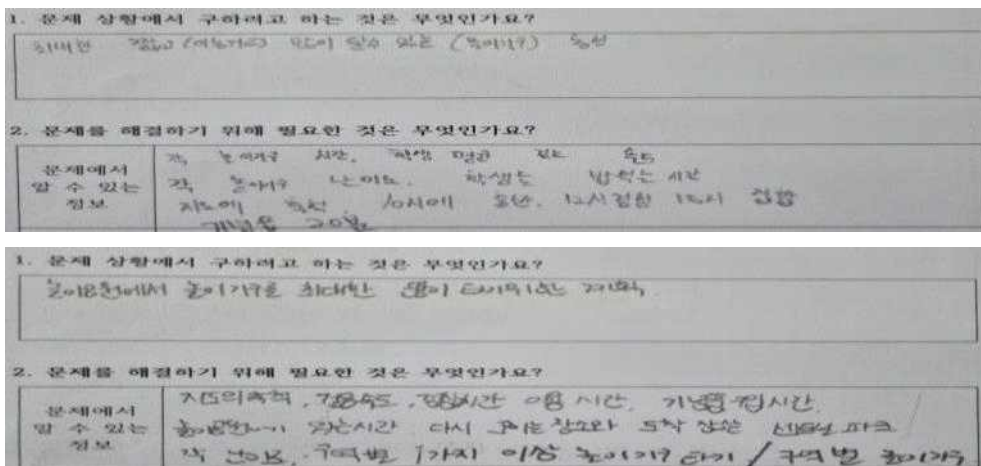 1. 문제 상황에서 구하려고 하는 것은 무엇인가요?
최대한 짧고 (이동거리) 많이 탈수 있는 (놀이기구) 동선
2. 문제를 해결하기 위해 필요한 것은 무엇인가요?
문제에서 알 수 있는 정보
각 놀이기구 시간, 학생 평균 걷는 속도
각 놀이기구 난이도, 학생들 밥먹는 시간
지도에 축척 10시에 출발, 12시 점심 집합
기념품 20분
1. 문제 상황에서 구하려고 하는 것은 무엇인가요?
놀이공원에서 놀이기구를 최대한 많이 타기위한 계획
2. 문제를 해결하기 위해 필요한 것은 무엇인가요?
문제에서 알 수 있는 정보
지도의 축척, 걸음속도, 점심시간 이용 시간, 기념품 점시간,
놀이공원 시간 다시 장소와 도착 장소
각 난이도, 구역별 1가지 이상 놀이기구 타기 / 구역 별 놀이기구